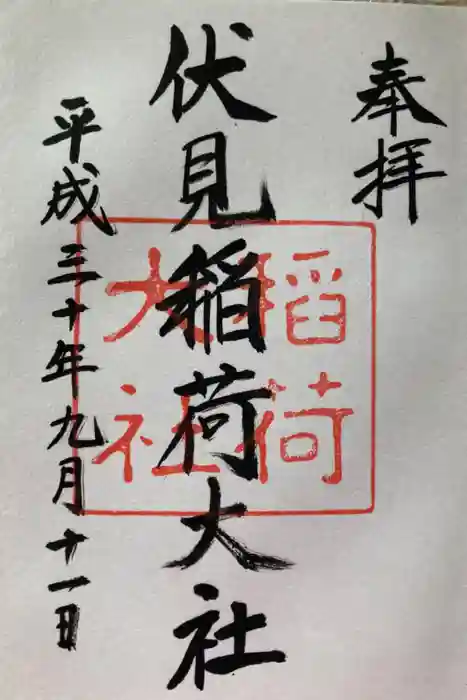 奉拝
伏見稲荷大社
平成三十年九月十一日
稲荷
大社